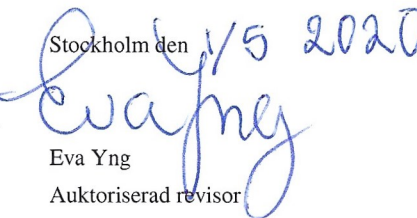 Stockholm den 1/5 2020
Eva Yng
Eva Yng
Auktoriserad revisor